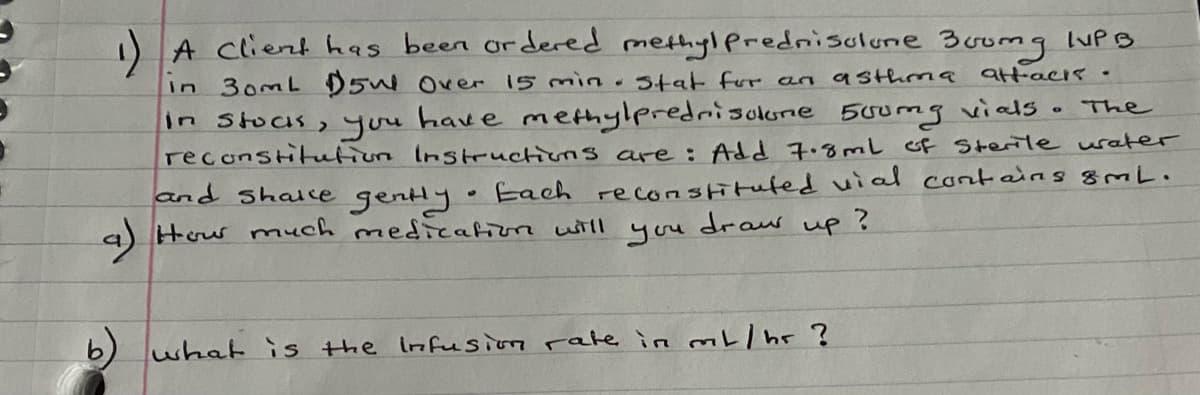 1) A client has been ordered methylprednisolone 300mg IVPB
in 30mL D5W over 15 min. Stat for an asthma attack.
In stock, you have methylprednisolone 500mg vials. The
reconstitution Instructions are: Add 7.8mL of Sterile water
and shake gently. Each reconstituted vial contains 8mL.
a) How much medication will you draw up?
b) what is the Infusion rate in mL/hr?